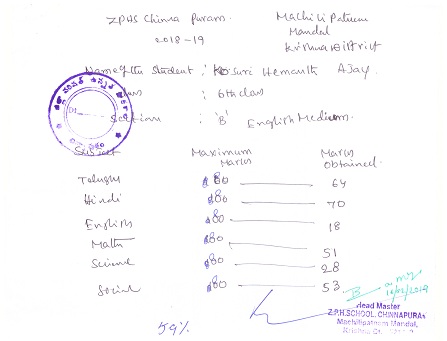 ZPHS Chinna Puram. Machili Patnam
2018-19 Mandal
Krishna District
Name of the Student : Kosuri Hemanth Ajay
Class : 6th class
Section : 'B' English Medium.
Subject Maximum Marks Marks Obtained
Telugu 80 64
Hindi 80 70
English 80 18
Maths 80 51
Science 80 28
Social 80 53
59%
Head Master
Z.P.H.SCHOOL, CHINNAPURAM
Machilipatnam Mandal,
Krishna Dt.